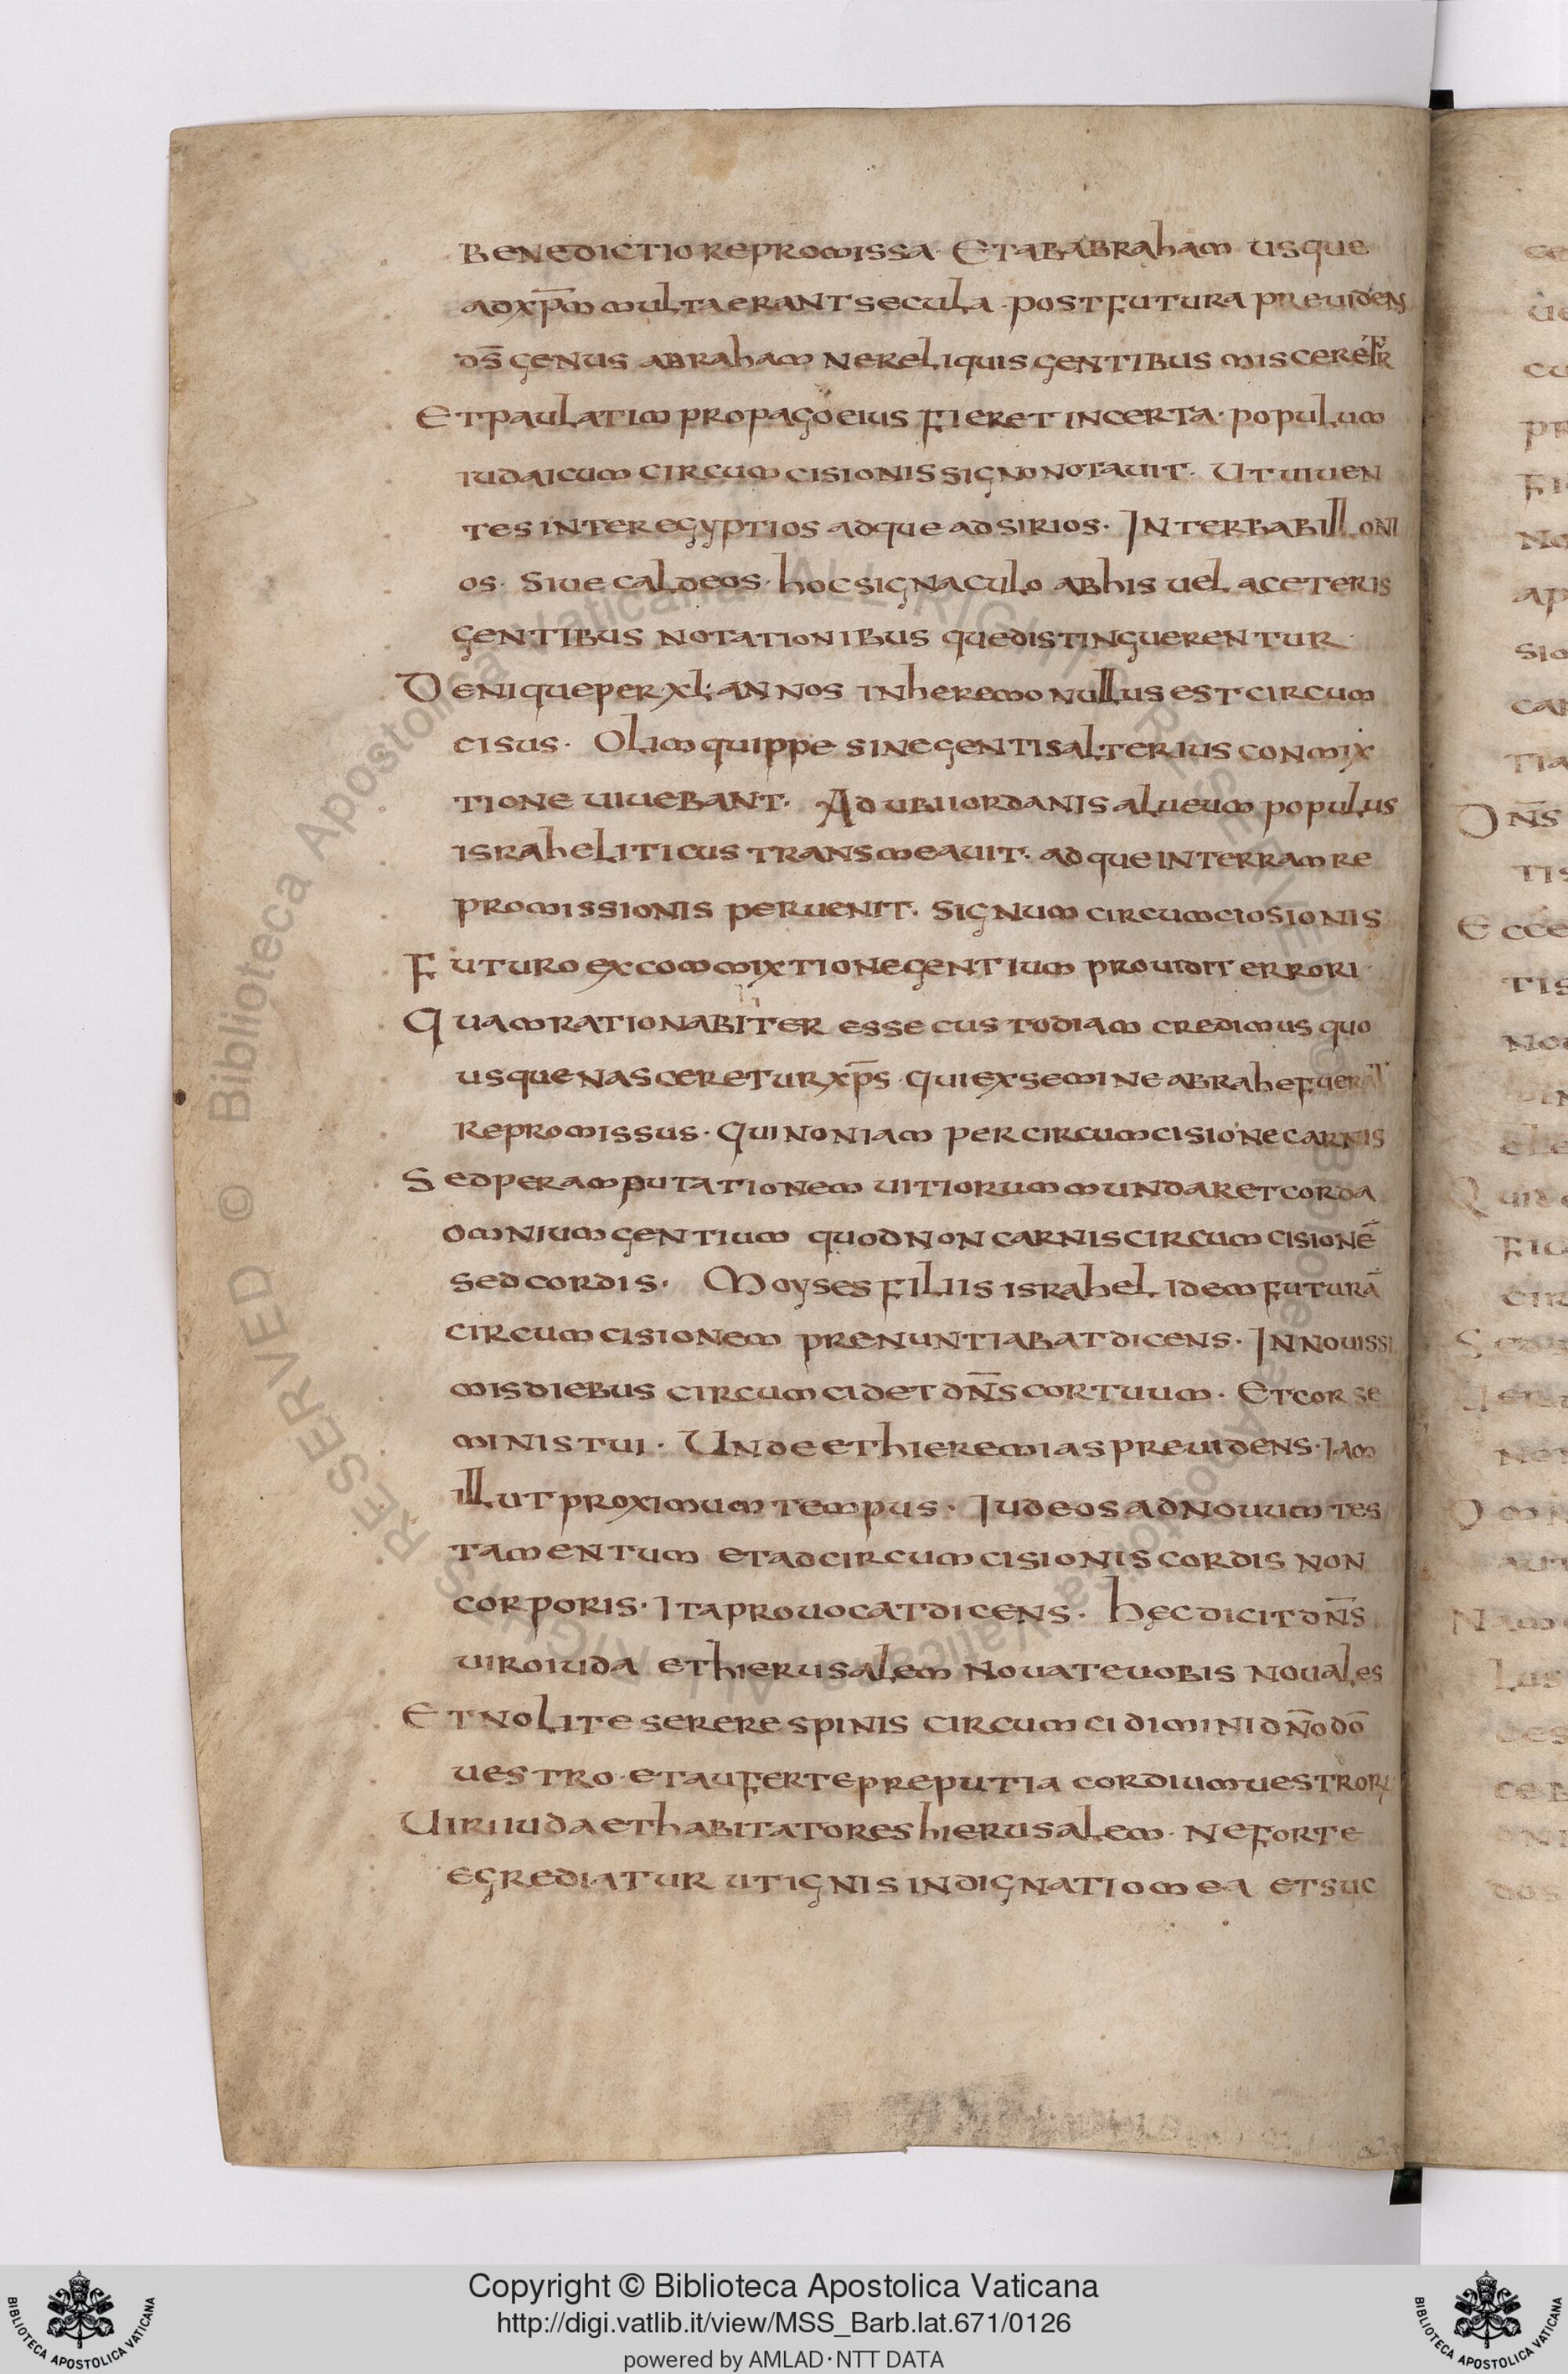 BENEDICTIO REPROMISSA· ET AB ABRAHAM USQUE
AD XP̅M MULTA ERANT SECULA· POST FUTURA PREUIDENS
DS̅ GENUS ABRAHAM NE RELIQUIS GENTIBUS MISCERETR
ET PAULATIM PROPAGO EIUS FIERET INCERTA· POPULUM
IUDAICUM CIRCUMCISIONIS SIGNO NOTAUIT· UT UIUEN
TES INTER EGYPTIOS ADQUE ADSIRIOS· INTER BABILLONI
OS· SIUE CALDEOS· HOC SIGNACULO AB HIS UEL A CETERIS
GENTIBUS NOTATIONIBUSQUE DISTINGUERENTUR·
DENIQUE PER XL· ANNOS IN HEREMO NULLUS EST CIRCUM
CISUS· OLIM QUIPPE SINE GENTIS ALTERIUS CONMIX
TIONE UIUEBANT· AD UBI IORDANIS ALUEUM POPULUS
ISRAHELITICUS TRANSMEAUIT· ADQUE IN TERRAM RE
PROMISSIONIS PERUENIT· SIGNUM CIRCUMCIOSIONIS
FUTURO EX COMMIXTIONE GENTIUM PROUIDIT ERRORI·
QUAM RATIONABITER ESSE CUSTODIAM CREDIMUS QUO
USQUE NASCERETUR XP̅S· QUI EX SEMINE ABRAHE FUERAT
REPROMISSUS· QUI NON IAM PER CIRCUMCISIONE CARNIS
SED PER AMPUTATIONEM UITIORUM MUNDARET CORDA
OMNIUM GENTIUM QUOD NON CARNIS CIRCUMCISIONE̅
SED CORDIS· MOYSES FILIIS ISRAHEL IDEM FUTURA̅
CIRCUMCISIONEM PRENUNTIABAT DICENS· IN NOUISSI
MIS DIEBUS CIRCUMCIDET DN̅S COR TUUM· ET COR SE
MINIS TUI· UNDE ET HIEREMIAS PREUIDENS· IAM
ILLUT PROXIMUM TEMPUS· IUDEOS AD NOUUM TES
TAMENTUM ET AD CIRCUMCISIONIS CORDIS NON
CORPORIS· ITA PROUOCAT DICENS· HĘC DICIT DN̅S
UIRO IUDA ET HIERUSALEM NOUATE UOBIS NOUALES
ET NOLITE SERERE SPINIS CIRCUMCIDIMINI DN̅O DO̅
UESTRO· ET AUFERTE PREPUTIA CORDIUM UESTROR
UIRI IUDA ET HABITATORES HIERUSALEM· NE FORTE
EGREDIATUR UT IGNIS INDIGNATIO MEA ET SUC
Copyright © Biblioteca Apostolica Vaticana
http://digi.vatlib.it/view/MSS_Barb.lat.671/0126
powered by AMLAD·NTT DATA